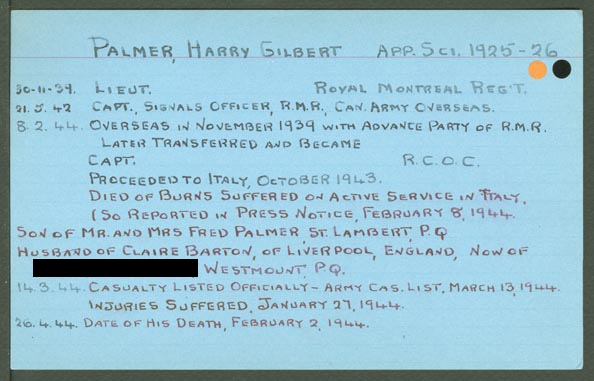 PALMER, HARRY GILBERT APP. SCI. 1925-26
30-11-39. LIEUT. ROYAL MONTREAL REG'T.
21.5.42 CAPT., SIGNALS OFFICER, R.M.R., CAN. ARMY OVERSEAS.
8.2.44. OVERSEAS IN NOVEMBER 1939 WITH ADVANCE PARTY OF R.M.R.
LATER TRANSFERRED AND BECAME
CAPT. R.C.O.C.
PROCEEDED TO ITALY, OCTOBER 1943.
DIED OF BURNS SUFFERED ON ACTIVE SERVICE IN ITALY.
(SO REPORTED IN PRESS NOTICE, FEBRUARY 8, 1944.
SON OF MR. AND MRS FRED PALMER, ST. LAMBERT, P.Q
HUSBAND OF CLAIRE BARTON, OF LIVERPOOL, ENGLAND, NOW OF
WESTMOUNT, P.Q.
14.3.44. CASUALTY LISTED OFFICIALLY - ARMY CAS. LIST, MARCH 13, 1944.
INJURIES SUFFERED, JANUARY 27, 1944.
26.4.44. DATE OF HIS DEATH, FEBRUARY 2, 1944.